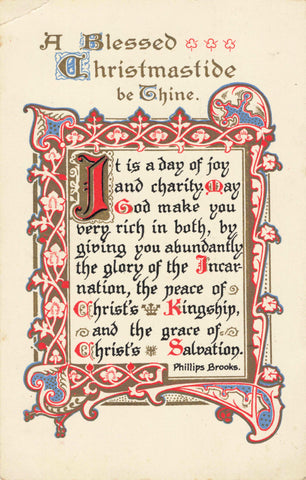 A Blessed
Christmastide
be Thine.
It is a day of joy
and charity. May
God make you
very rich in both, by
giving you abundantly
the glory of the Incar-
nation, the peace of
Christ's Kingship,
and the grace of
Christ's Salvation.
Phillips Brooks.